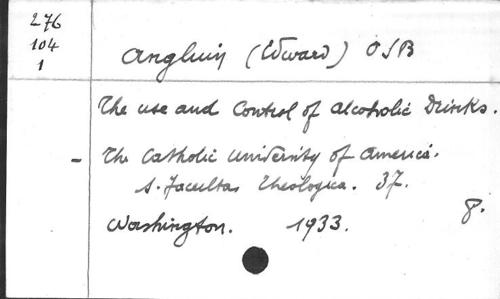 276
104
1
Angluin (Edward) OSB
The use and Control of alcoholic Drinks.
- The Catholic University of America.
S. Facultas Theologica. 37.
8.
Washington. 1933.